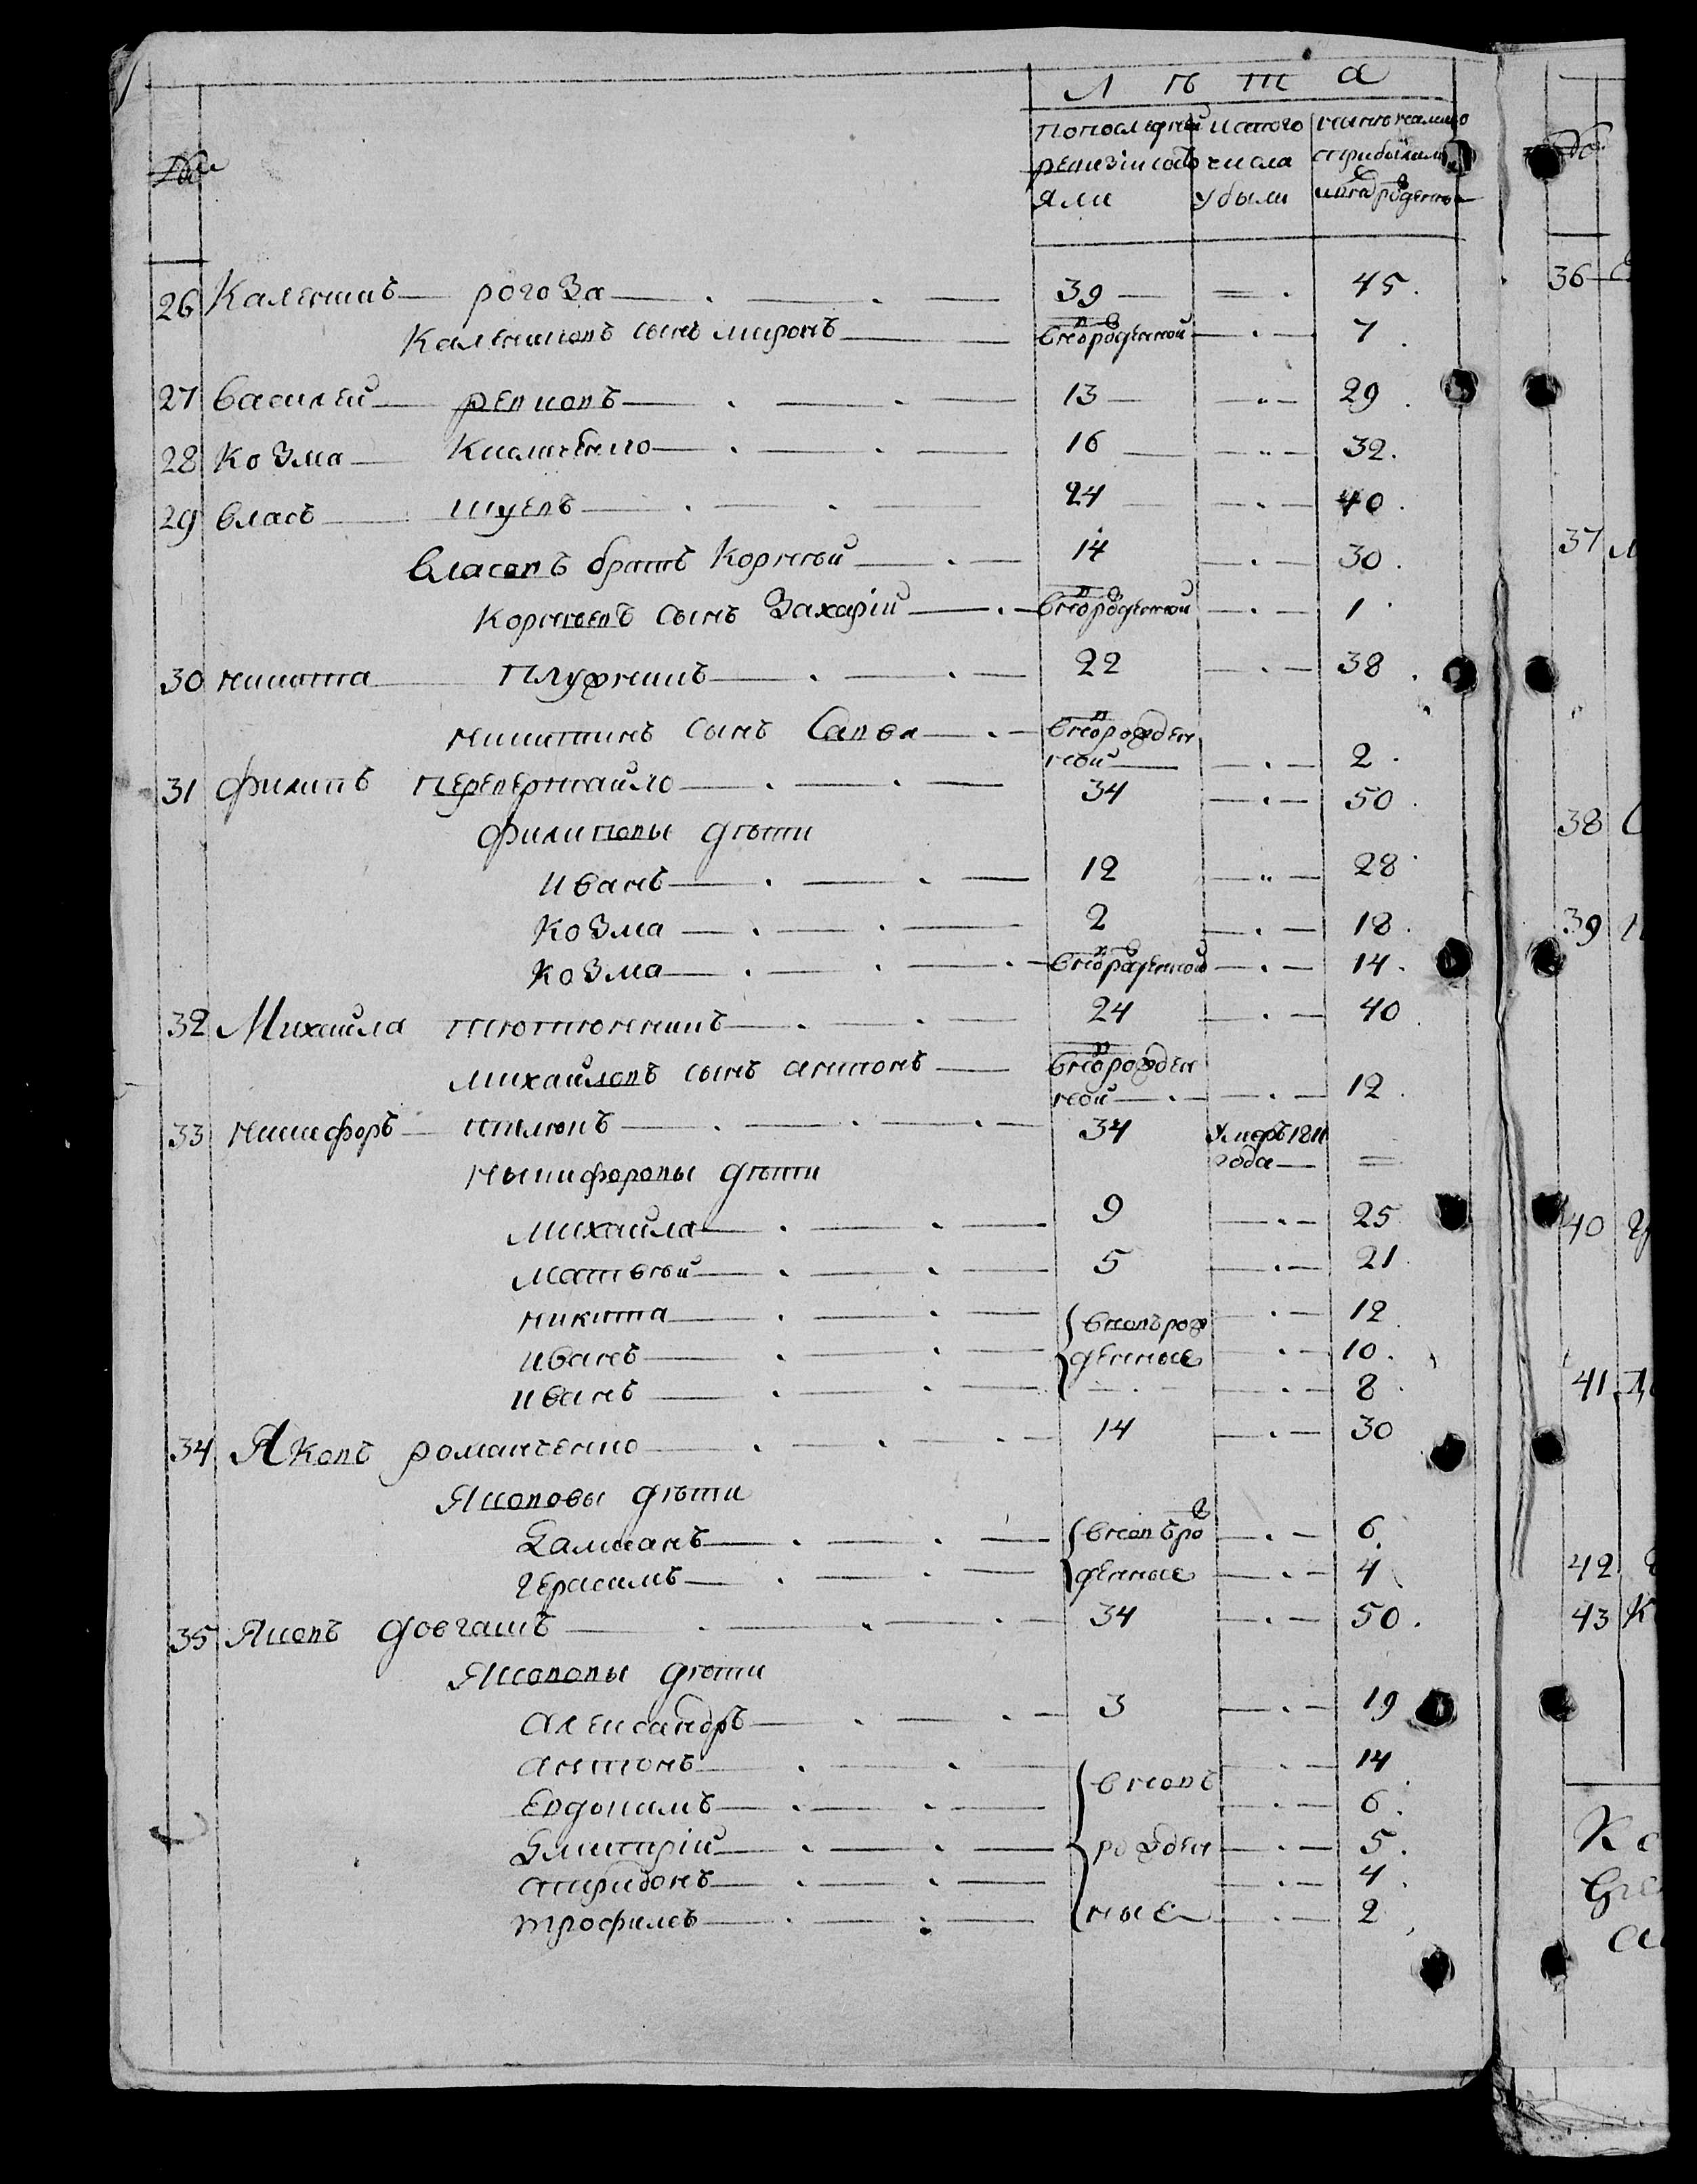 Лѣта
№ по последней ревизии состояли | ис того числа убыли | ныне налицо с прибылыми и новорожденн
26 Каленикъ рогоза 39 45.
Калениковъ сынъ миронъ вновьрожденной 7
27 Василей ревковъ 13 29
28 Козма 16 32.
29 власъ шуевъ 24 40.
власовъ братъ Корнѣй 14 30.
Корнѣевъ сынъ Захарій вновьрожденной 1
30 никита Плужникъ 22 38
никитинъ сынъ Савва вновьрожденной 2
31 филипъ перевертайло 34 50
филиповы дѣти
иванъ 12 28
Козма 2 18.
Козма вновьрожденной 14.
32 Михайла тютюнникъ 24 40
михайловъ сынъ антонъ вновьрожденной 12
33 никифоръ 34 умеръ 1811 года =
ныкифоровы дѣти
михайла 9 25
матвѣй 5 21
никита вновърожденные 12
иванъ 10.
иванъ 8
34 Яковъ романченко 14 30
Яковови дѣти
Дамианъ вновърожденные 6
герасимъ 4
35 Яковъ довгашъ 34 50.
Якововы дѣти
александръ 3 19
антонъ вновърожденные 14
Евдокимъ 6.
Дмитрій 5.
спиридонъ 4
трофимъ 2
36
37
38
39
40
41
42
43